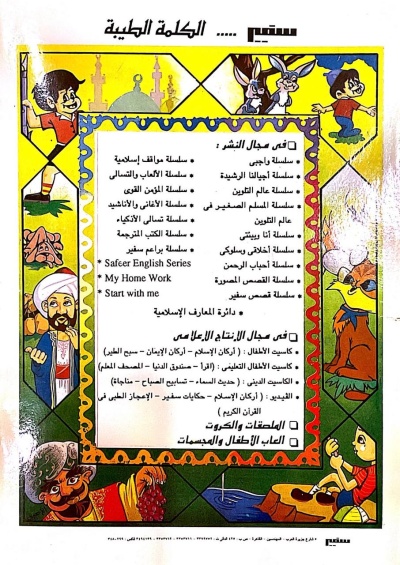 سفير ..... الكلمة الطيبة
❏ فى مجال النشر :
* سلسلة واجبى
* سلسلة مواقف إسلامية
* سلسلة أجيالنا الرشيدة
* سلسلة الألعاب والتسالى
* سلسلة عالم التلوين
* سلسلة المؤمن القوى
* سلسلة المسلم الصغير فى عالم التلوين
* سلسلة الأغانى والأناشيد
* سلسلة تسالى الأذكياء
* سلسلة أنا وبيئتى
* سلسلة الكتب المترجمة
* سلسلة أخلاقى وسلوكى
* سلسلة براعم سفير
* سلسلة أحباب الرحمن
* Safeer English Series
* سلسلة القصص المصورة
* My Home Work
* سلسلة قصص سفير
* Start with me
* دائرة المعارف الإسلامية
❏ فى مجال الإنتاج الإعلامى
* كاسيت الأطفال : ( أركان الإسلام – أركان الإيمان – سبح الطير)
* كاسيت الأطفال التعليمى : ( اقرأ – صندوق الدنيا – المصحف المعلم)
* الكاسيت الدينى : ( حديث السماء – تسابيح الصباح – مناجاة)
* الفيديو : ( أركان الإسلام – حكايات سفير – الإعجاز الطبى فى القرآن الكريم )
❏ الملصقات والكروت
❏ ألعاب الأطفال والمجسمات
سفير